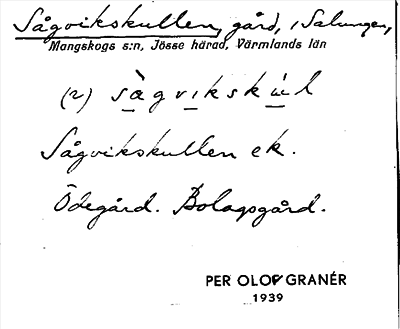 Sågvikskullen, gård, i Salungen,
Mangskogs s:n, Jösse härad, Värmlands län
(2) sàgviksku̇́l
Sågvikskullen ek.
Ödegård. Bolagsgård.
PER OLOF GRANÉR
1939